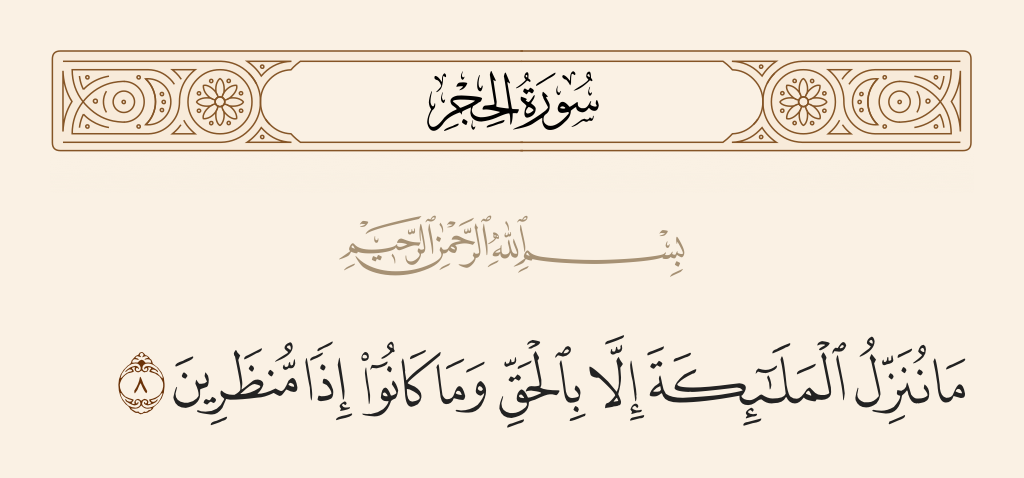 سُورَةُ الحِجْرِ
بِسْمِ ٱللَّهِ ٱلرَّحْمَٰنِ ٱلرَّحِيمِ
مَا نُنَزِّلُ ٱلْمَلَـٰٓئِكَةَ إِلَّا بِٱلْحَقِّ وَمَا كَانُوٓا۟ إِذًا مُّنظَرِينَ ٨